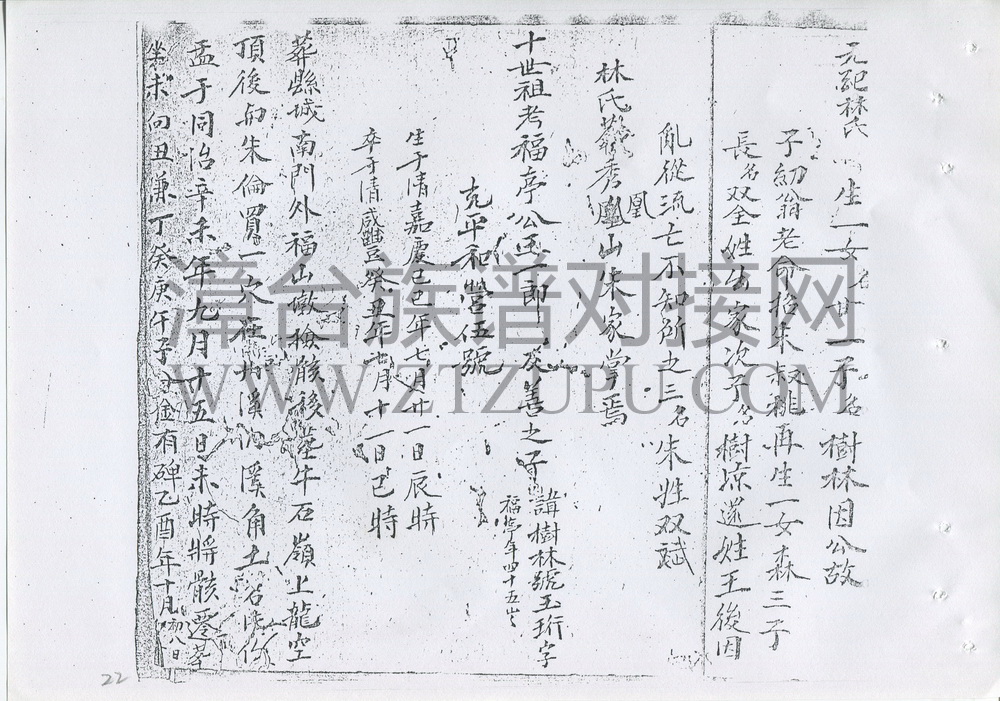 元配林氏 生一女名廿一子名樹林因公故
子幼翁老命招朱叔桃再生一女森三子
長名双全姓出家次子名樹涼還姓王後因
亂從流亡不知所之三名朱姓双斌
林氏葬秀山朱家掌焉
凰
十世祖考福亭公玉一郎 友善之子 諱樹林號玉珩字
福亭年四十五歲
充平和營伍號
生于清嘉慶己巳年七月廿一日辰時
卒于清咸豐癸丑年七月十一日巳時
葬縣城南門外福山墩撿骸後葬牛石嶺上龍空
頂後向朱倫買一穴在 溪 溪角土名
孟于同治辛未年九月十五日未時將骸遷葬
坐未向丑兼丁癸庚午子 金有碑乙酉年十月初八日
漳台族谱对接网
WWW.ZTZUPU.COM
22